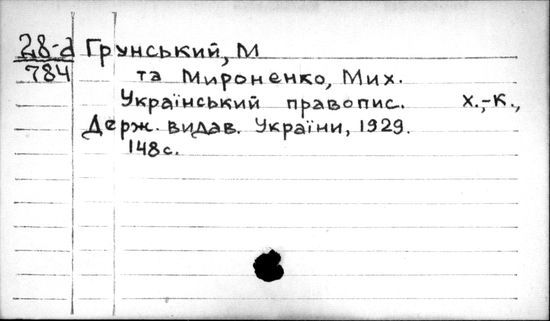 28-д Грунський, М
784 та Мироненко, Мих.
Український правопис. Х.,-К.,
Держ. видав. України, 1929.
148с.